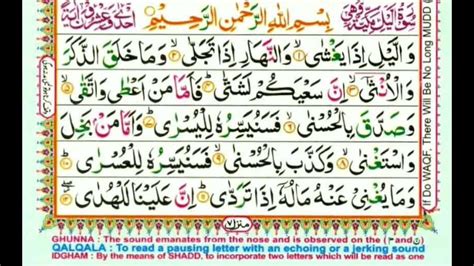 سُوْرَةُ الَّيْلِ مَكِّيَّةٌ وَّهِيَ
بِسْمِ اللّٰهِ الرَّحْمٰنِ الرَّحِيْمِ
وَالَّيْلِ اِذَا يَغْشٰى ۙ﴿۱﴾ وَالنَّهَارِ اِذَا تَجَلّٰى ۙ﴿۲﴾ وَمَا خَلَقَ الذَّكَرَ
وَالْاُنْثٰٓى ۙ﴿۳﴾ اِنَّ سَعْيَكُمْ لَشَتّٰى ؕ﴿۴﴾ فَاَمَّا مَنْ اَعْطٰى وَاتَّقٰى ۙ﴿۵﴾
وَصَدَّقَ بِالْحُسْنٰى ۙ﴿۶﴾ فَسَنُيَسِّرُهٗ لِلْيُسْرٰى ؕ﴿۷﴾ وَاَمَّا مَنْۢ بَخِلَ
وَاسْتَغْنٰى ۙ﴿۸﴾ وَكَذَّبَ بِالْحُسْنٰى ۙ﴿۹﴾ فَسَنُيَسِّرُهٗ لِلْعُسْرٰى ؕ﴿۱۰﴾
وَمَا يُغْنِيْ عَنْهُ مَالُهٗٓ اِذَا تَرَدّٰى ؕ﴿۱۱﴾ اِنَّ عَلَيْنَا لَلْهُدٰى ﴿۱۲﴾
منزل ۷
If Do WAQF. There Will Be No Long MUDD
GHUNNA : The sound emanates from the nose and is observed on the (م and ن)
QALQALA : To read a pausing letter with an echoing or a jerking sound
IDGHAM : By the means of SHADD, to incorporate two letters which will be read as one